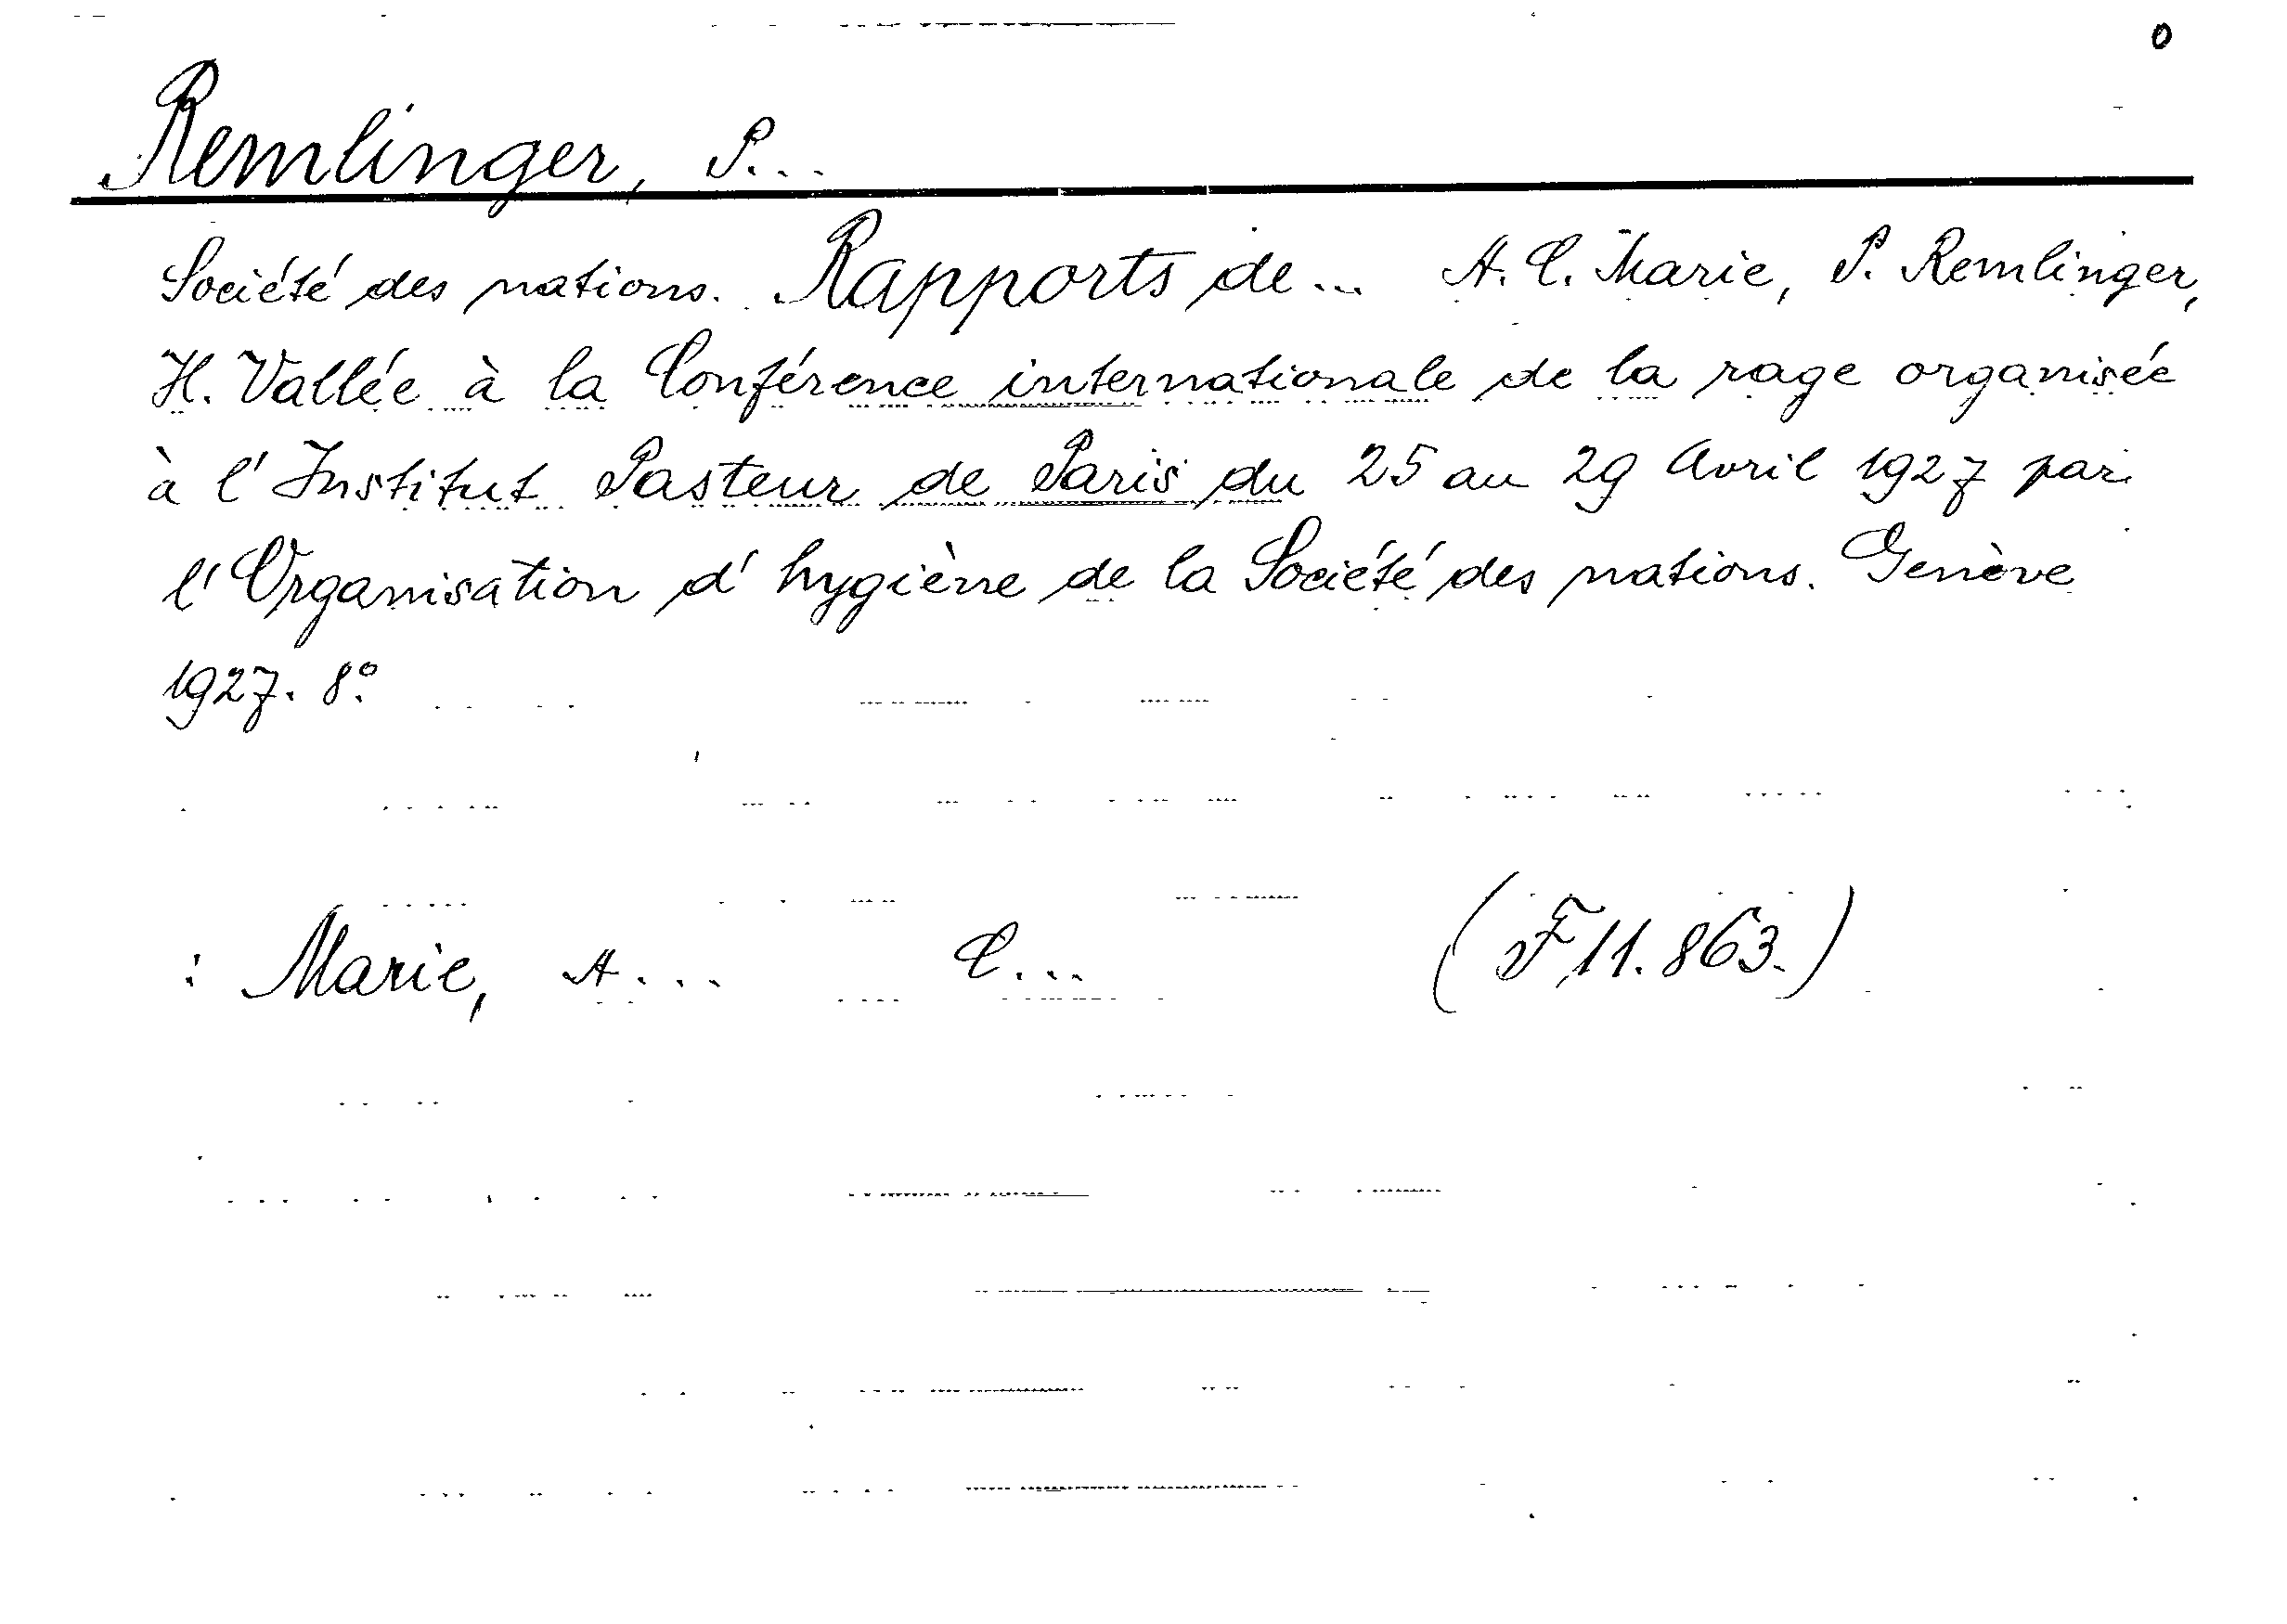 o
Remlinger, P...
Société des nations. Rapports de... A. C. Marie, P. Remlinger,
H. Vallée à la Conférence internationale de la rage organisée
à l'Institut Pasteur de Paris du 25 au 29 Avril 1927 par
l'Organisation d'hygiène de la Société des nations. Genève
1927. 8°.
: Marie, A... C... (F 11.863.)